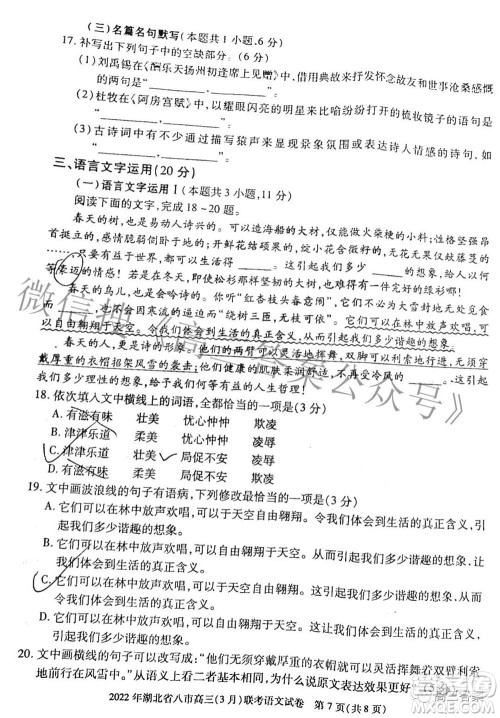 （三）名篇名句默写（本题共1小题,6分）
17. 补写出下列句子中的空缺部分。（6分）
（1）刘禹锡在《酬乐天扬州初逢席上见赠》中,借用典故来抒发怀念故友和世事沧桑感慨
的两句是“
（2）杜牧在《阿房宫赋》中,以耀眼闪亮的明星来比喻纷纷打开的梳妆镜子的语句是“
（3）古诗词中有不少通过描写猿声来营造景象氛围或表达诗人情感的诗句,如“
三、语言文字运用（20分）
（一）语言文字运用Ⅰ（本题共3小题,11分）
阅读下面的文字,完成18～20题。
春天的树,是易动人诗兴的。可以造海船的大材,仅能点火炬的小料；性格坚强昂
首挺立的,态度谦卑低声下气的；开鲜花结硕果的,绽小花含微籽的,无不欣欣然仅歧蔓茎的
……只要有益于世界,都可以成为春天的装饰。这引起我们多少____的想象,会以何
等____的情感！甚至即使松杉那样坚韧的大树,
春天的鸟儿,也是动人情怀的。听听“红杏枝头春意闹”的啼声,不会因为大雪封
地时,也不会因寒流的侵入而唱出“绕树三匝,无枝可依”的哀伤。它们可以在林中放声欢唱,可
以自由翱翔于天空。令我们体会到生活的真正含义,引起我们多少谐趣的想象。
戴厚重的衣帽招架风雪的袭击；他们健康的肌肤柔润舒适,不再
我们多少理性的想象,给予我们何等有益的人生哲理！
18. 依次填入文中横线上的词语,全都恰当的一项是（3分）
A. 有滋有味 壮美 忧心忡忡 欺凌
B. 津津乐道 柔美 忧心忡忡 欺凌
C. 津津乐道 壮美 局促不安 侵凌
D. 有滋有味 柔美 局促不安 侵凌
19. 文中画波浪线的句子有语病,下列修改最恰当的一项是（3分）
A. 它们可以在林中放声欢唱,可以自由翱翔于天空。令我们体会到生活的真正含义,引
起我们多少谐趣的想象。
B. 它们可以在林中放声欢唱,可以自由翱翔于天空。引起我们多少谐趣的想象、让我们
体会到生活的真正含义。
C. 它们可以在林中放声欢唱,可以于天空自由翱翔。这引起我们多少谐趣的想象,
令我们体会到生活的真正含义。
D. 它们可以在林中放声欢唱,可以于天空自由翱翔。令我们体会到生活的真正含义,这
引起我们多少谐趣的想象。
20. 文中画横线的句子可以改写成：“他们无须穿戴厚重的衣帽就可以灵活舒展着双臂利索
地前行在风雪中。”从语义上看二者基本相同,为什么说原文表达效果更好
2022年湖北省八市高三（3月）联考语文试卷 第7页（共8页）